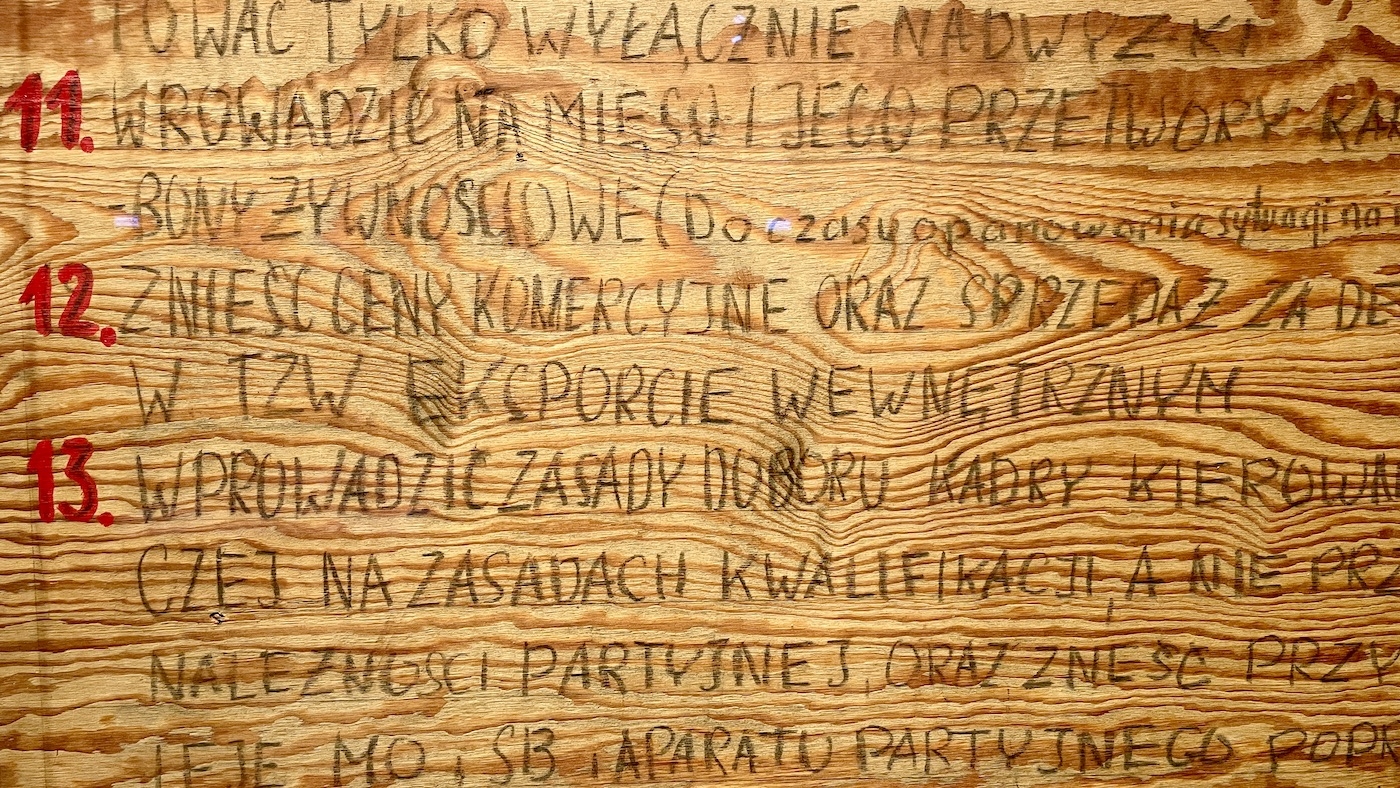 TOWAĆ TYLKO WYŁĄCZNIE NADWYŻKI
11. WROWADZIĆ NA MIĘSO I JEGO PRZETWORY KA
-BONY ŻYWNOŚCIOWE (Do czasu opanowania sytuacji na
12. ZNIEŚĆ CENY KOMERCYJNE ORAZ SPRZEDAŻ ZA DE
W TZW EKSPORCIE WEWNĘTRZNYM
13. WPROWADZIĆ ZASADY DOBORU KADRY KIEROWN
CZEJ NA ZASADACH KWALIFIKACJI, A NIE PRZ
NALEŻNOŚCI PARTYJNEJ, ORAZ ZNEŚĆ PRZY
LEJE MO, SB, APARATU PARTYJNEGO POPR